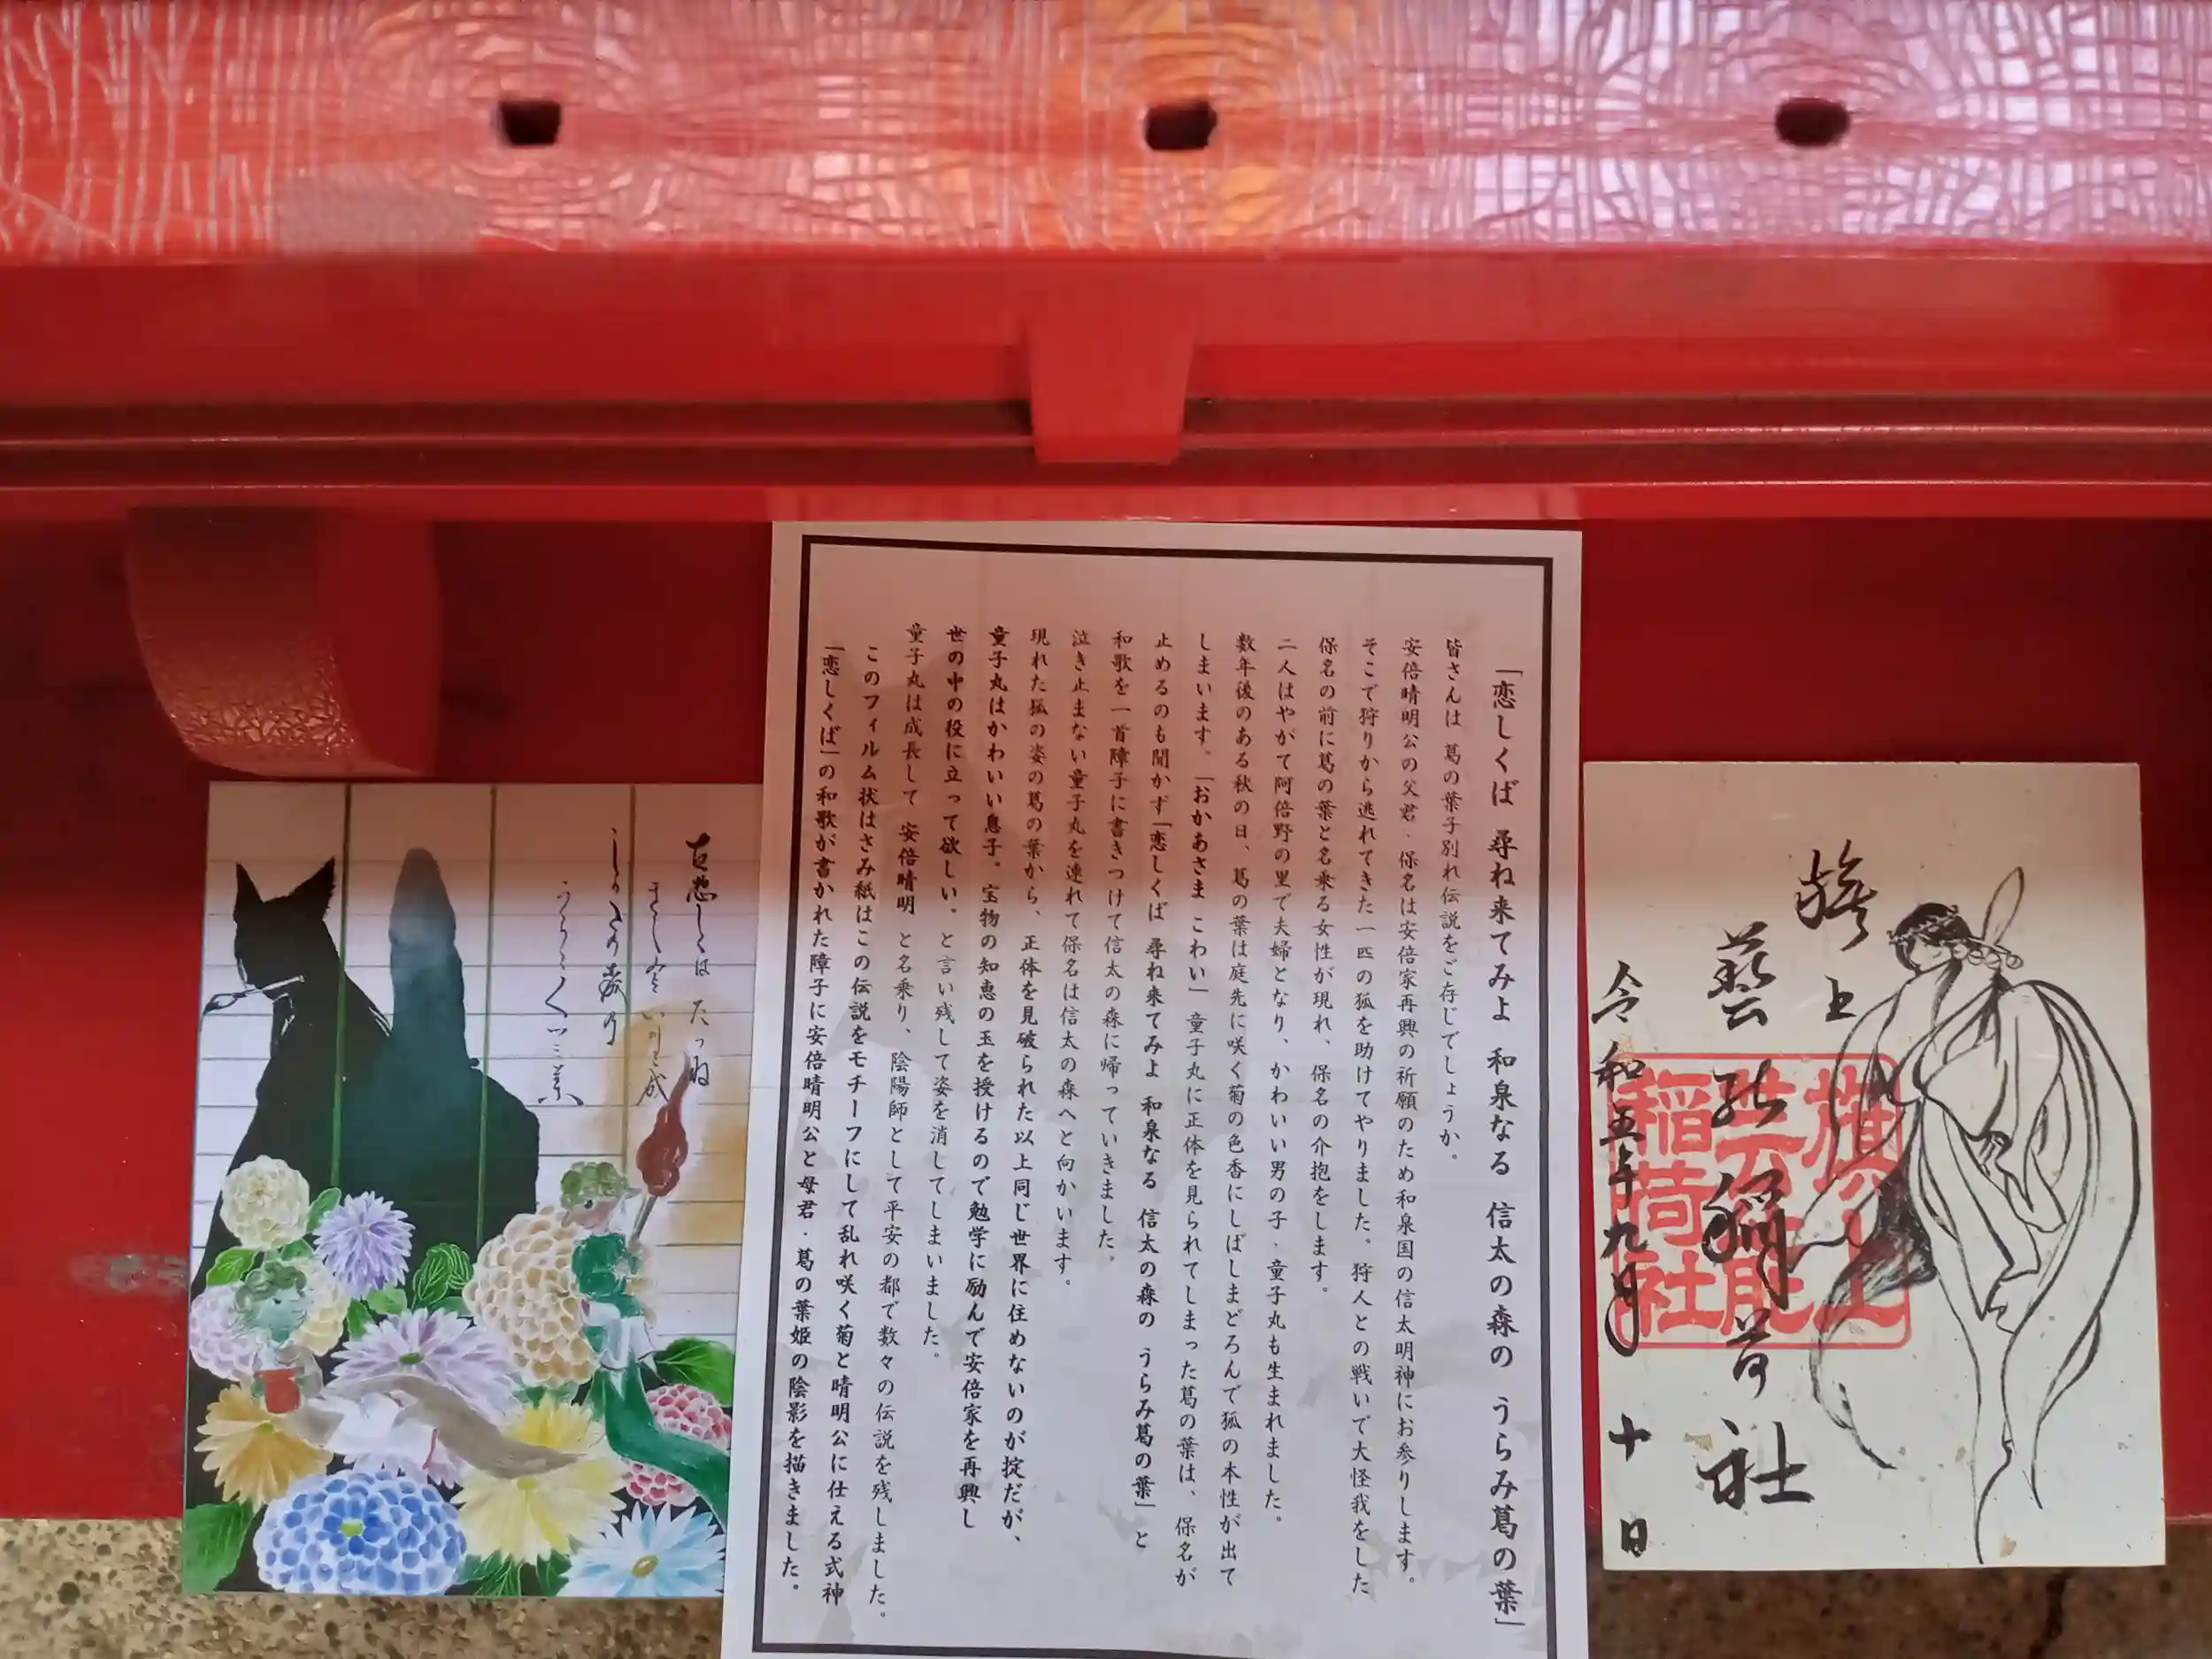 「恋しくば 尋ね来てみよ 和泉なる 信太の森の うらみ葛の葉」
皆さんは 葛の葉子別れ伝説をご存じでしょうか。
安倍晴明公の父君・保名は安倍家再興の祈願のため和泉国の信太明神にお参りします。
そこで狩りから逃れてきた一匹の狐を助けてやりました。狩人との戦いで大怪我をした
保名の前に葛の葉と名乗る女性が現れ、保名の介抱をします。
二人はやがて阿倍野の里で夫婦となり、かわいい男の子・童子丸も生まれました。
数年後のある秋の日、葛の葉は庭先に咲く菊の色香にしばしまどろんで狐の本性が出て
しまいます。「おかあさま こわい」童子丸に正体を見られてしまった葛の葉は、保名が
止めるのも聞かず「恋しくば 尋ね来てみよ 和泉なる 信太の森の うらみ葛の葉」と
和歌を一首障子に書きつけて信太の森に帰っていきました。
泣き止まない童子丸を連れて保名は信太の森へと向かいます。
現れた狐の姿の葛の葉から、正体を見破られた以上同じ世界に住めないのが掟だが、
童子丸はかわいい息子。宝物の知恵の玉を授けるので勉学に励んで安倍家を再興し
世の中の役に立って欲しい。と言い残して姿を消してしまいました。
童子丸は成長して 安倍晴明 と名乗り、陰陽師として平安の都で数々の伝説を残しました。
このフィルム状はさみ紙はこの伝説をモチーフにして乱れ咲く菊と晴明公に仕える式神
「恋しくば」の和歌が書かれた障子に安倍晴明公と母君・葛の葉姫の陰影を描きました。
旗上
芸能稲荷社
令和五年九月十日
旗上
芸能
稲荷社